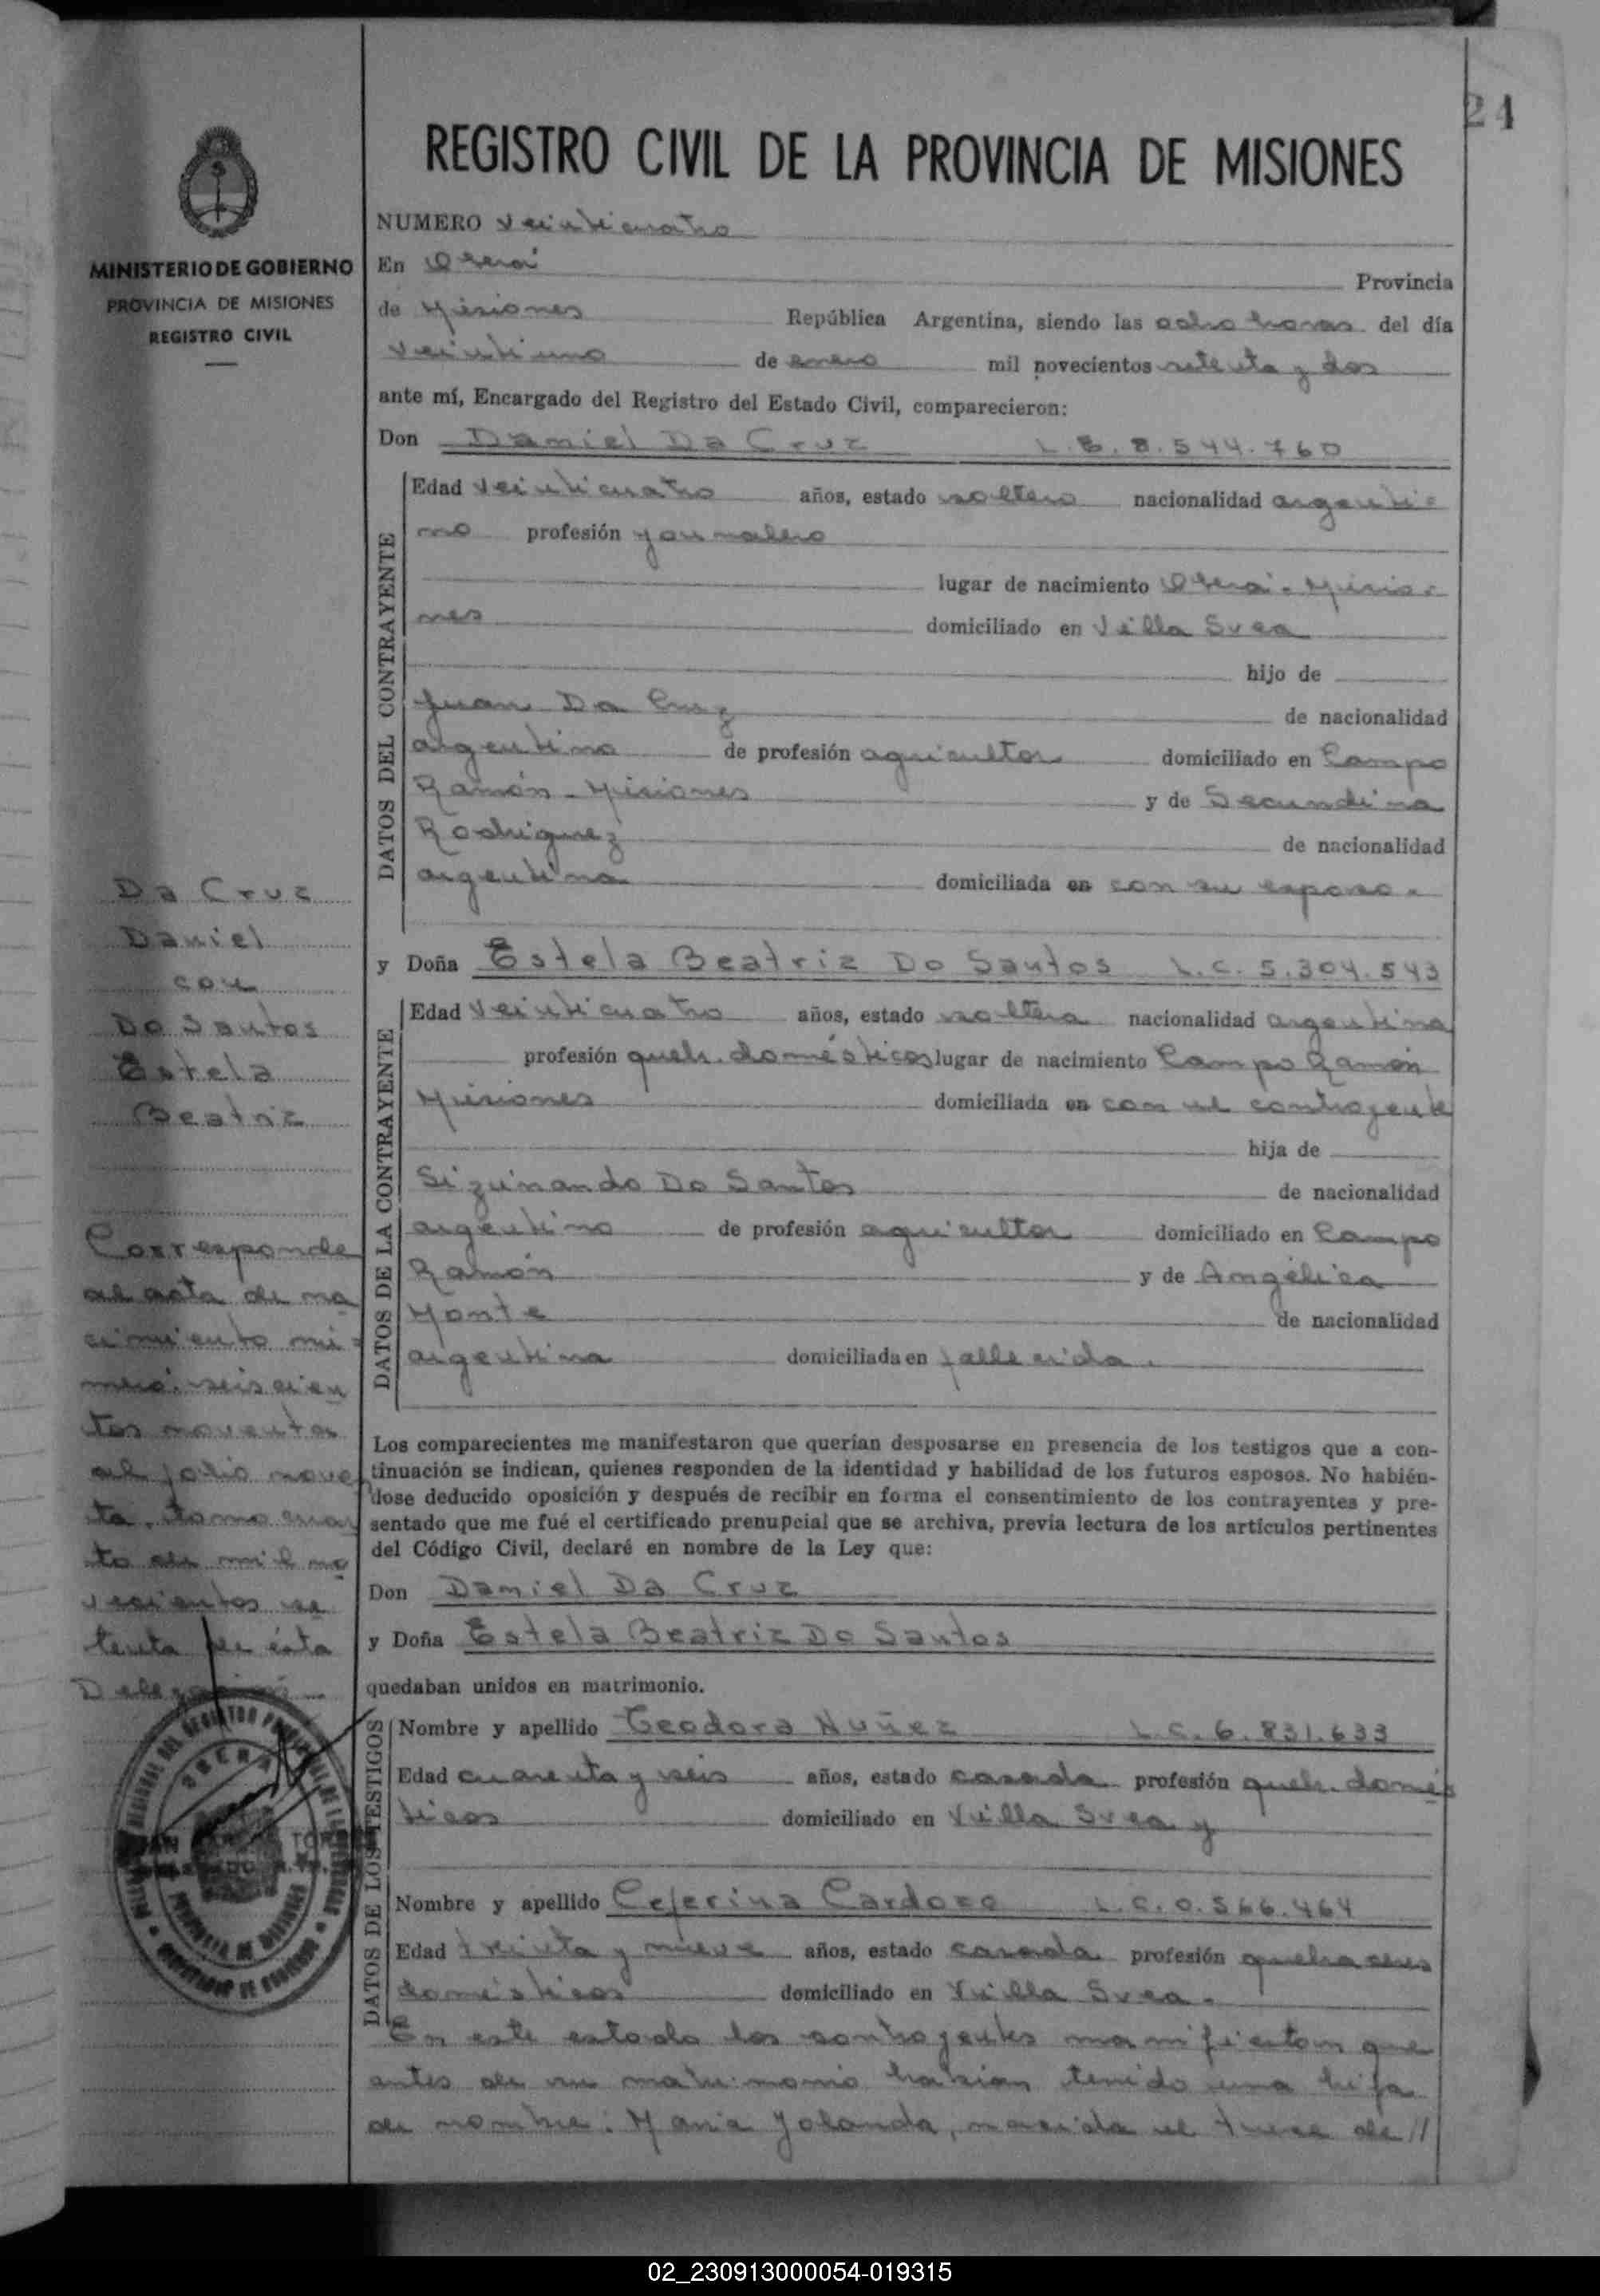 24
REGISTRO CIVIL DE LA PROVINCIA DE MISIONES
MINISTERIO DE GOBIERNO
PROVINCIA DE MISIONES
REGISTRO CIVIL
NUMERO veinticuatro
En Oberá Provincia
de Misiones República Argentina, siendo las ocho horas del día
veintiuno de enero mil novecientos setenta y dos
ante mí, Encargado del Registro del Estado Civil, comparecieron:
Don Daniel Da Cruz L.E. 8.544.760
DATOS DEL CONTRAYENTE
Edad veinticuatro años, estado soltero nacionalidad argenti-
no profesión jornalero
lugar de nacimiento Oberá - Misio-
nes domiciliado en Villa Svea
hijo de
Juan Da Cruz de nacionalidad
argentino de profesión agricultor domiciliado en Campo
Ramón - Misiones y de Secundina
Rodriguez de nacionalidad
argentina domiciliada en con su esposo.
y Doña Estela Beatriz Do Santos L.C. 5.304.543
DATOS DE LA CONTRAYENTE
Edad veinticuatro años, estado soltera nacionalidad argentina
profesión queh. domésticos lugar de nacimiento Campo Ramón
Misiones domiciliada en con el contrayente
hija de
Sizinando Do Santos de nacionalidad
argentino de profesión agricultor domiciliado en Campo
Ramón y de Angélica
Monte de nacionalidad
argentina domiciliada en fallecida.
Los comparecientes me manifestaron que querían desposarse en presencia de los testigos que a con-
tinuación se indican, quienes responden de la identidad y habilidad de los futuros esposos. No habién-
dose deducido oposición y después de recibir en forma el consentimiento de los contrayentes y pre-
sentado que me fué el certificado prenupcial que se archiva, previa lectura de los artículos pertinentes
del Código Civil, declaré en nombre de la Ley que:
Don Daniel Da Cruz
y Doña Estela Beatriz Do Santos
quedaban unidos en matrimonio.
DATOS DE LOS TESTIGOS
Nombre y apellido Teodora Nuñez L.C. 6.831.633
Edad cuarenta y seis años, estado casada profesión queh. domés
ticos domiciliado en Villa Svea y
Nombre y apellido Ceferina Cardozo L.C. 0.566.464
Edad treinta y nueve años, estado casada profesión quehaceres
domésticos domiciliado en Villa Svea.
En este estado los contrayentes manifiestan que
antes de su matrimonio habían tenido una hija
de nombre: Maria Yolanda, nacida el trece de //
Da Cruz
Daniel
con
Do Santos
Estela
Beatriz
Corresponde
al acta de na
cimiento nú-
mero: seiscien
tos noventa
al folio noven
ta, tomo cuar
to de mil no
vecientos se
tenta de ésta
Delegación
OBERA
PROVINCIA DE MISIONES
02_230913000054-019315